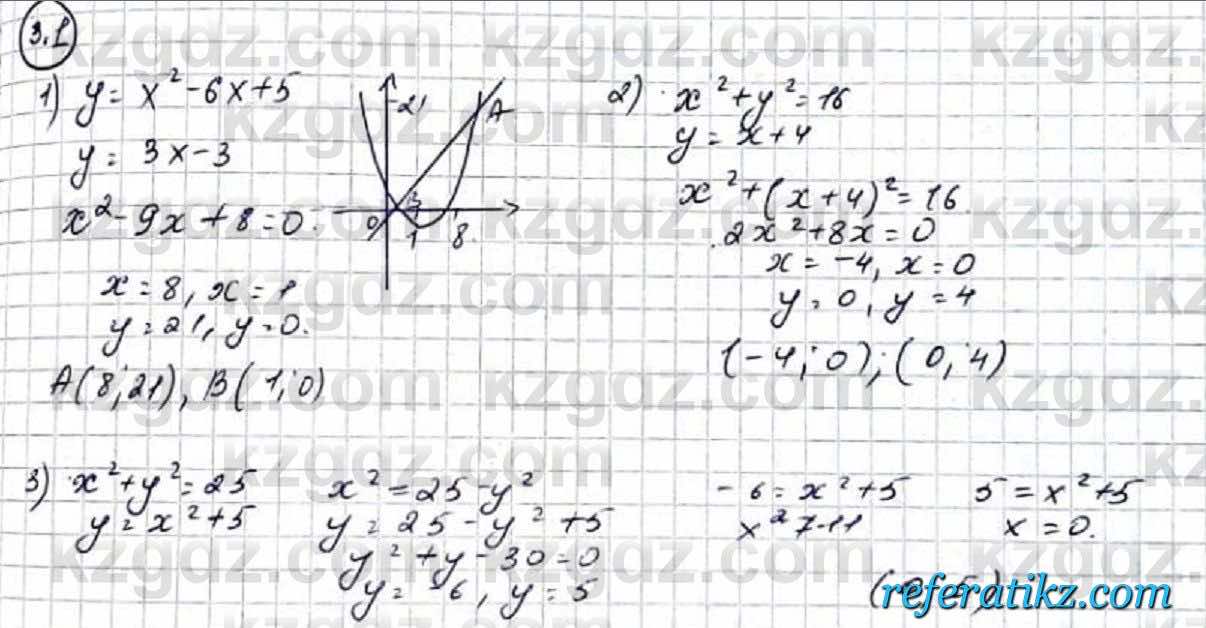 3.1
1) y = x² - 6x + 5
y = 3x - 3
x² - 9x + 8 = 0.
x = 8, x = 1
y = 21, y = 0.
A(8; 21), B(1; 0)
21
A
B
0
1
8
2) x² + y² = 16
y = x + 4
x² + (x + 4)² = 16
2x² + 8x = 0
x = -4, x = 0
y = 0, y = 4
(-4; 0); (0; 4)
3) x² + y² = 25
y = x² + 5
x² = 25 - y²
y = 25 - y² + 5
y² + y - 30 = 0
y = -6, y = 5
- 6 = x² + 5
x² 7-11
5 = x² + 5
x = 0.
kzgdz.com
referatikz.com